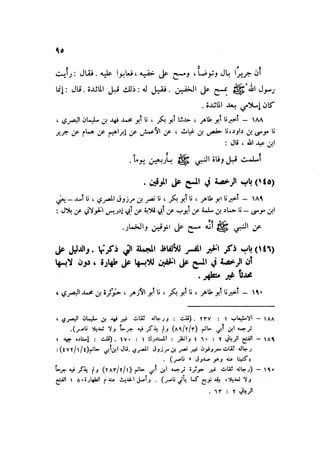 ٩٥
أن جريراً بال وتوضأ، ومسح على خفيه، فعابوا عليه. فقال: رأيت
رسول الله ﷺ يمسح على الخفين. فقيل له: ذلك قبل المائدة. قال: إنما
كان إسلامي بعد المائدة.
١٨٨ – أخبرنا أبو طاهر، حدثنا أبو بكر، نا أبو محمد فهد بن سليمان البصري،
نا موسى بن داود، نا حفص بن غياث، عن الأعمش عن إبراهيم عن همام عن جرير
ابن عبد الله، قال:
أسلمت قبل وفاة النبي ﷺ بأربعين يوماً.
(١٤٥) باب الرخصة في المسح على الموقين.
١٨٩ – أخبرنا أبو طاهر، نا أبو بكر، نا نصر بن مرزوق المصري، نا أسد – يعني
ابن موسى – نا حماد بن سلمة عن أيوب عن أبي قلابة عن أبي إدريس الخولاني عن بلال:
عن النبي ﷺ أنه مسح على الموقين والخمار.
(١٤٦) باب ذكر الخبر المفسر للألفاظ المجملة التي ذكرتها. والدليل على
أن الرخصة في المسح على الخفين للابسها على طهارة، دون لابسها
محدثاً غير متطهر.
١٩٠ – أخبرنا أبو طاهر، نا أبو بكر، نا أبو الأزهر، حوثرة بن محمد البصري،
١٨٨ – الاستيعاب ١: ٢٣٧. (قلت: ورجاله ثقات غير فهد بن سليمان البصري،
ترجمه ابن أبي حاتم (٨٩/٢/٣) ولم يذكر فيه جرحاً ولا تعديلاً – ناصر).
١٨٩ – الفتح الرباني ٢: ٦٠؛ وانظر: المستدرك ١: ١٧٠. (قلت: إسناده جيد،
رجاله ثقات معروفون غير نصر بن مرزوق المصري. قال ابن أبي حاتم (٤٧٢/١/٤):
«كتبنا عنه وهو صدوق» – ناصر).
١٩٠ – (رجاله ثقات غير حوثرة ترجمه ابن أبي حاتم (٢٨٣/٢/١) ولم يذكر فيه جرحاً
ولا تعديلاً، وقد توبع كما يأتي – ناصر). وأصل الحديث عند م الطهارة ٨٠؛ الفتح
الرباني ٢: ٦٣.